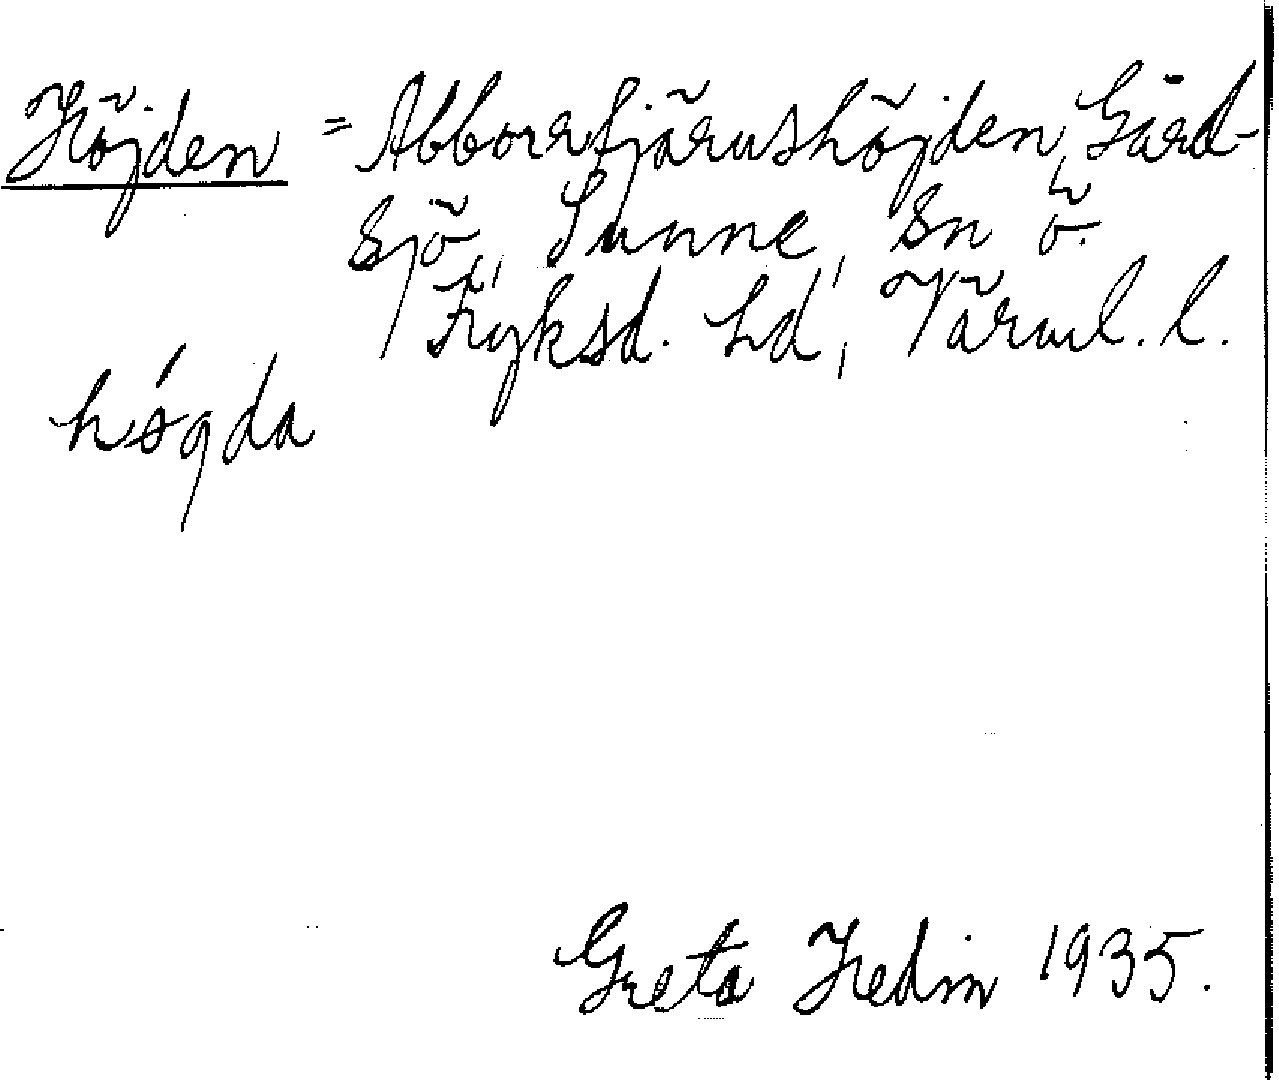 Höjden = Abborrtjärnshöjden, Gård-
sjö, Sunne, sn ö.
Fryksd. hd, Värml. l.
hǿgda
Greta Hedin 1935.